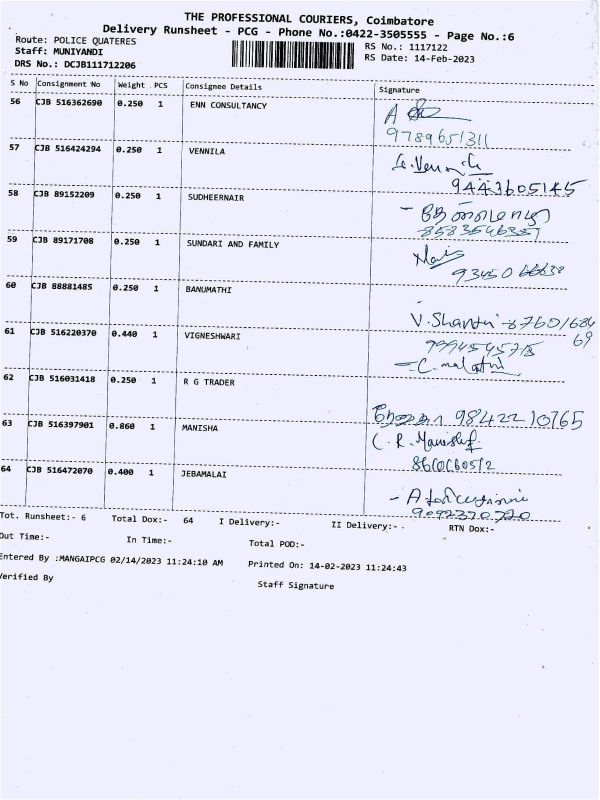 THE PROFESSIONAL COURIERS, Coimbatore
Delivery Runsheet - PCG - Phone No.:0422-3505555 - Page No.:6
Route: POLICE QUATERES
RS No.: 1117122
Staff: MUNIYANDI
RS Date: 14-Feb-2023
DRS No.: DCJB111712206
S No Consignment No Weight PCS Consignee Details Signature
56 CJB 516362690 0.250 1 ENN CONSULTANCY A
9789651311
57 CJB 516424294 0.250 1 VENNILA
9443605145
58 CJB 89152209 0.250 1 SUDHEERNAIR
59 CJB 89171708 0.250 1 SUNDARI AND FAMILY
60 CJB 88881485 0.250 1 BANUMATHI
V. Shanthi - 87601684
69
61 CJB 516220370 0.440 1 VIGNESHWARI
- C. malathi
62 CJB 516031418 0.250 1 R G TRADER
9842210765
63 CJB 516397901 0.860 1 MANISHA
C. R.
64 CJB 516472070 0.400 1 JEBAMALAI
- A
9092370720
Tot. Runsheet:- 6 Total Dox:- 64 I Delivery:- II Delivery:- . RTN Dox:-
Out Time:- In Time:- Total POD:-
Entered By :MANGAIPCG 02/14/2023 11:24:10 AM Printed On: 14-02-2023 11:24:43
Verified By Staff Signature